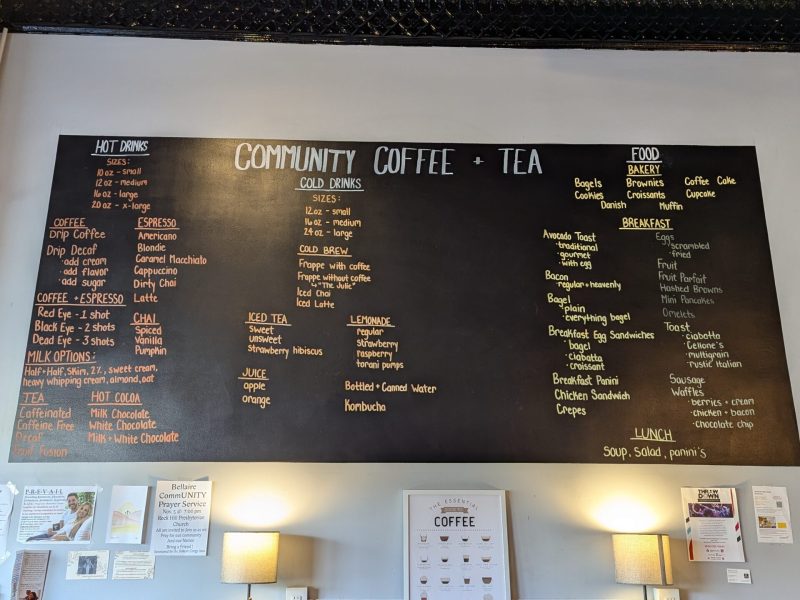 COMMUNITY COFFEE + TEA
HOT DRINKS
SIZES:
10 oz - small
12 oz - medium
16 oz - large
20 oz - x-large
COFFEE
Drip Coffee
Drip Decaf
·add cream
·add flavor
·add sugar
ESPRESSO
Americano
Blondie
Caramel Macchiato
Cappuccino
Dirty Chai
Latte
COFFEE + ESPRESSO
Red Eye - 1 shot
Black Eye - 2 shots
Dead Eye - 3 shots
CHAI
Spiced
Vanilla
Pumpkin
MILK OPTIONS:
Half+Half, Skim, 2%, sweet cream,
heavy whipping cream, almond, oat
TEA
Caffeinated
Caffeine Free
Decaf
Fruit Fusion
HOT COCOA
Milk Chocolate
White Chocolate
Milk + White Chocolate
COLD DRINKS
SIZES:
12 oz - small
16 oz - medium
24 oz - large
COLD BREW
Frappe with coffee
Frappe without coffee
"The Julie"
Iced Chai
Iced Latte
ICED TEA
sweet
unsweet
strawberry hibiscus
JUICE
apple
orange
LEMONADE
regular
strawberry
raspberry
torani pumps
Bottled + Canned Water
Kombucha
FOOD
BAKERY
Bagels Brownies Coffee Cake
Cookies Croissants Cupcake
Danish Muffin
BREAKFAST
Avocado Toast
·traditional
·gourmet
·with egg
Bacon
·regular + heavenly
Bagel
·plain
·everything bagel
Breakfast Egg Sandwiches
·bagel
·ciabatta
·croissant
Breakfast Panini
Chicken Sandwich
Crepes
Eggs
·scrambled
·fried
Fruit
Fruit Parfait
Hashed Browns
Mini Pancakes
Omelets
Toast
·ciabatta
·Cellone's
·multigrain
·rustic Italian
Sausage
Waffles
·berries + cream
·chicken + bacon
·chocolate chip
LUNCH
Soup, Salad, panini's
PREVAIL
Bellaire
CommUNITY
Prayer Service
Nov. 5 @ 7:00 pm
Rock Hill Presbyterian
Church
All are invited to join us as we
Pray for our community
And our Nation
Bring a Friend!
THE ESSENTIAL
COFFEE
THROW
DOWN